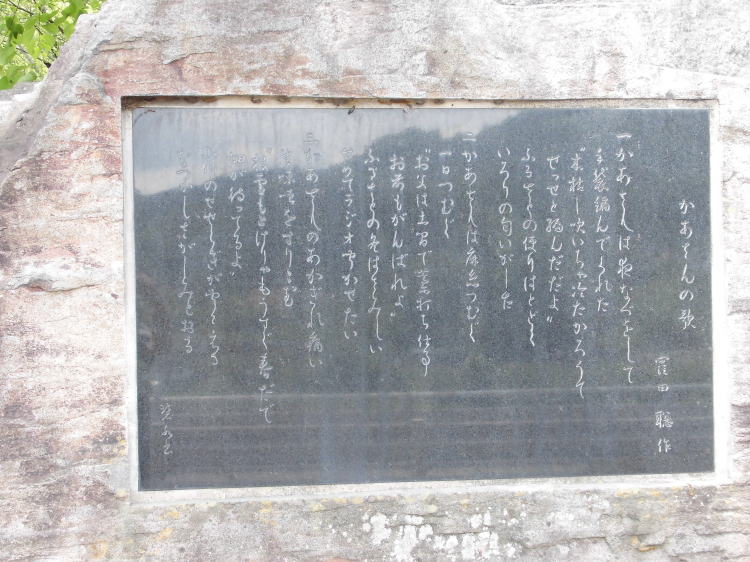 かあさんの歌
窪田 聡 作
一かあさんは夜なべをして
手袋編んでくれた
"木枯し吹いちゃ冷たかろうて
せっせと編んだだよ"
ふるさとの便りはとどく
いろりの匂いがした
二かあさんは麻糸つむぐ
一日つむぐ
"お父は土間で藁打ち仕事
お前もがんばれよ"
ふるさとの冬はさみしい
せめてラジオ聞かせたい
三かあさんのあかぎれ痛い
生味噌をすりこむ
"根雪もとけりゃもうすぐ春だで
畑が待ってるよ"
小川のせせらぎが聞える
なつかしさがしみとおる